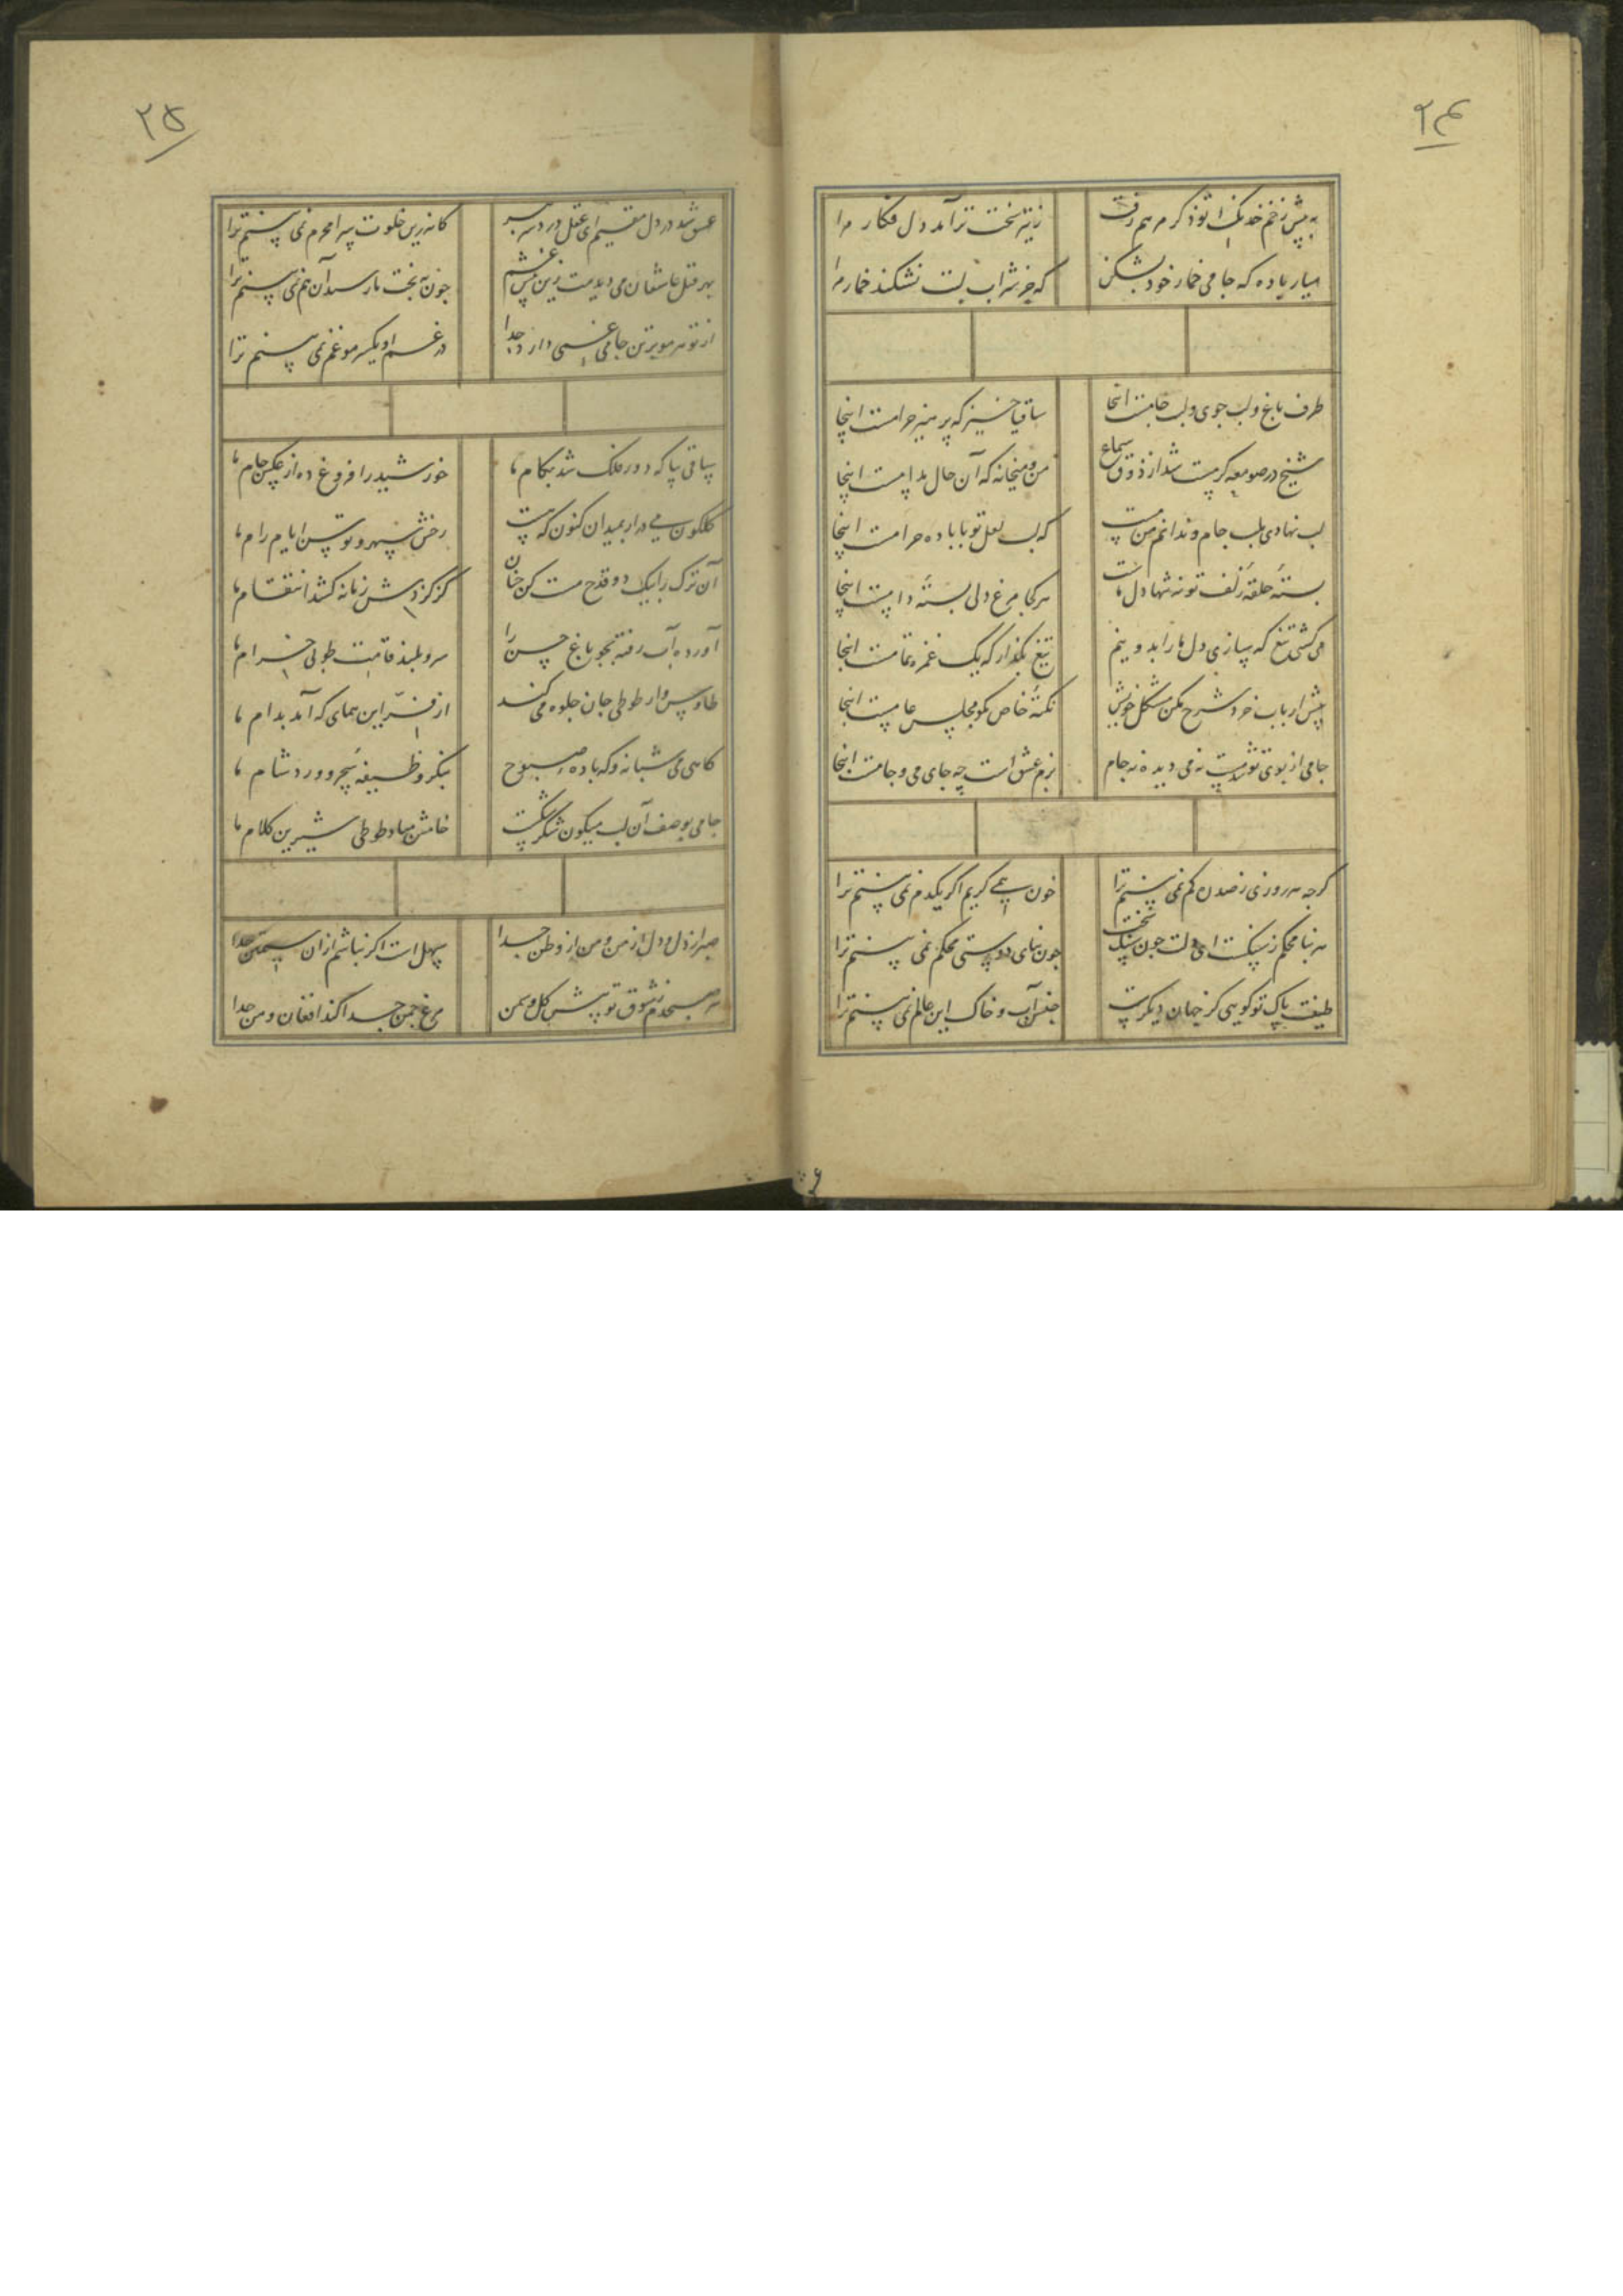 ۲۴
به پیش زخم خدنک تو ذکر مرهم رفت
زتیر سخت تر آمد دل فکار مرا
میار باده که جامی خمار خود بشکن
که جز شراب لبت نشکند خمار مرا
طرف باغ و لب جوی و لب جامست اینجا
ساقیا خیز که پرهیز حرامست اینجا
شیخ در صومعه کر مست شد از ذوق سماع
من و میخانه که آن حال مدامست اینجا
لب نهادی بلب جام و ندانم من مست
که لب لعل تو یا باده حرامست اینجا
بستهٔ حلقهٔ زلف تو نه تنها دل ماست
هر کجا مرغ دلی بستهٔ دامست اینجا
می کشی تیغ که سازی دل ما را بدو نیم
تیغ بگذار که یک غمزه تمامست اینجا
پیش ارباب خرد شرح مکن مشکل خویش
نکتهٔ خاص مکو مجلس عامست اینجا
جامی از بوی تو شد مست نه می دیده نه جام
بزم عشق است چه جای می و جامست اینجا
کرچه هر روزی ز صد ره کم نمی بینم ترا
خون همی کریم اکر یکدم نمی بینم ترا
هر بنا محکم ز سنکست ای دلت چون سنک سخت
چون بنای دوستی محکم نمی بینم ترا
طینت پاک تو کویی کز جهان دیکرست
جنس آب و خاک این عالم نمی بینم ترا
۲۵
عشق شد در دل مقیم ای عقل درد سر ببر
کاندرین خلوت سرا محرم نمی بینم ترا
بهر قتل عاشقان می دیدمت زین پیش خشم
چون به بخت ما رسید آن هم نمی بینم ترا
از تو هر مو بر تن جامی غمی دارد جدا
در غم او یکسر مو غم نمی بینم ترا
ساقی بیا که دور فلک شد بکام ما
خورشید را فروغ ده از عکس جام ما
کلکون می درار بمیدان کنون که هست
رخش سپهر و توسن ایام رام ما
آن ترک را بیک دو قدح مست کن چنان
کز کردش زمانه کشد انتقام ما
آورده آب رفته بجو باغ حسن را
سرو بلند قامت طوبی خرام ما
طاوس وار طوطی جان جلوه می کند
از فر این همای که آمد بدام ما
کاهی می شبانه و که باده صبوح
بنکر وظیفه سحر و ورد شام ما
جامی بوصف آن لب میکون شکر شکست
خامش مباد طوطی شیرین کلام ما
صبر از دل و دل از من و من از وطن جدا
سهل است اکر نباشم از آن سیمتن جدا
هر صبحدم ز شوق تو پیش کل و سمن
مرغ چمن جدا کند افغان و من جدا